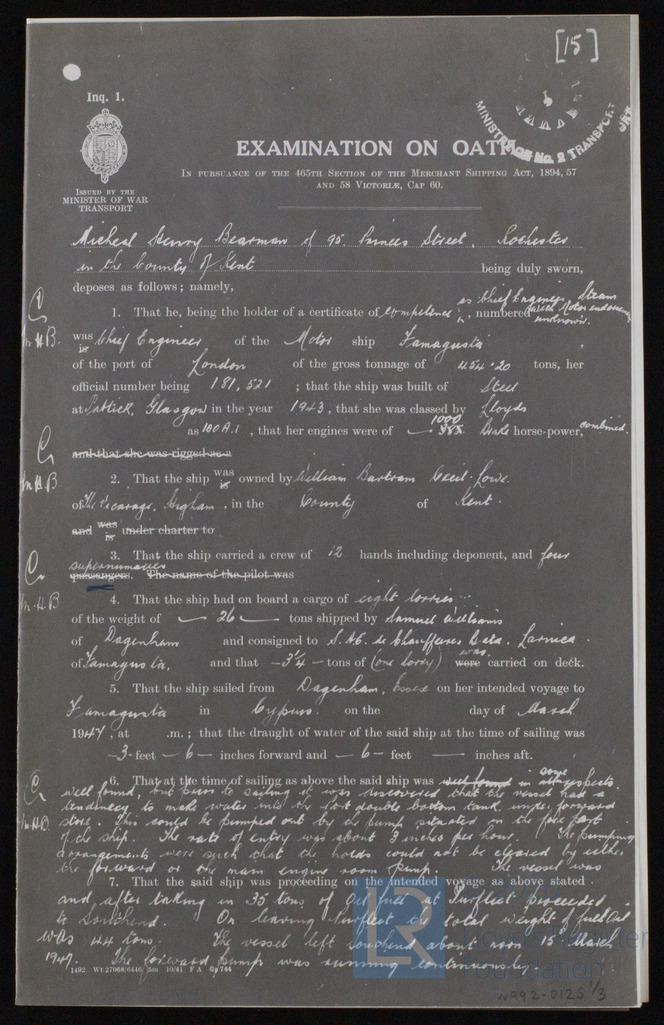 [15]
Inq. 1.
MINISTRY TRANSPORT
No. 2
EXAMINATION ON OATH
IN PURSUANCE OF THE 465TH SECTION OF THE MERCHANT SHIPPING ACT, 1894, 57
AND 58 VICTORIÆ, CAP 60.
ISSUED BY THE
MINISTER OF WAR
TRANSPORT
Micheal Henry Bearman of 95. Princes Street, Rochester
in the County of Kent being duly sworn,
deposes as follows; namely,
as Chief Engineer Steam
1. That he, being the holder of a certificate of competence, numbered (with Motor endorsement) unknown.
M.H.B.
was is Chief Engineer of the Motor ship Famagusta
of the port of London of the gross tonnage of 454.20 tons, her
official number being 181,521 ; that the ship was built of Steel
at Partick, Glasgow in the year 1943, that she was classed by Lloyds
as 100 A.1, that her engines were of 1000 Brake horse-power, combined.
and that she was rigged as a
2. That the ship was is owned by William Bartram Cecil-Lowe
M.H.B.
of The Vicarage, Higham, in the County of Kent.
and was is under charter to
3. That the ship carried a crew of 12 hands including deponent, and four
supernumaries
passengers. The name of the pilot was
M.H.B
4. That the ship had on board a cargo of eight lorries
of the weight of 26 tons shipped by Samuel Williams
of Dagenham and consigned to S.A.E. de Larnica.
of Famagusta, and that 3¼ tons of (one lorry) were was carried on deck.
5. That the ship sailed from Dagenham, Essex on her intended voyage to
Famagusta in Cyprus. on the day of March
1947, at .m.; that the draught of water of the said ship at the time of sailing was
3 feet 6 inches forward and 6 feet inches aft.
6. That at the time of sailing as above the said ship was well found in some respects.
well found, but prior to sailing it was discovered that the vessel had a
tendency to make water into the double bottom tank under forward
M.H.B.
store. This could be pumped out by the pump situated in the fore part
of the ship. The rate of entry was about 3 inches per hour. The pumping
arrangements were such that the holds could not be cleared by either
the forward or the main engine room pump. The vessel was
7. That the said ship was proceeding on the intended voyage as above stated
and after taking in 35 tons of Oil fuel at Purfleet proceeded
to Southend. On leaving Purfleet the total weight of fuel Oil
was 44 tons. The vessel left Southend about noon 15th March
1947. The forward pump was running continuously
1492 Wt.27068/6446 5m 10/41 F A Gp 744
LR
Lloyd's Register
Foundation
W992-0125 1/3